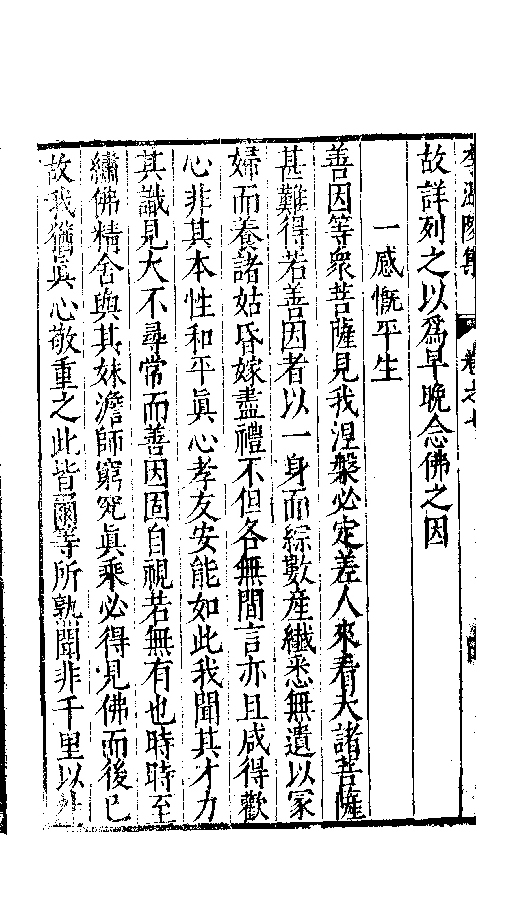 李溫陵集 卷之七
故詳列之以爲早晚念佛之因
一感慨平生
善因等衆菩薩見我涅槃必定差人來看夫諸菩薩
甚難得若善因者以一身而綜數産纖悉無遺以冢
婦而養諸姑昏嫁盡禮不但各無間言亦且咸得歡
心非其本性和平眞心孝友安能如此我聞其才力
其識見大不尋常而善因固自視若無有也時時至
繡佛精舍與其妹澹師窮究眞乘必得見佛而後已
故我猶眞心敬重之此皆爾等所熟聞非千里以外